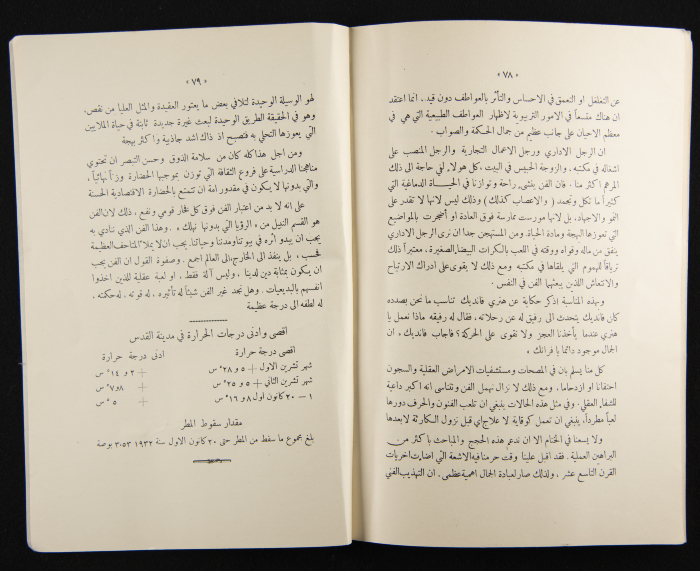 « ٧٨ »
عن التغلغل او التعمق في الاحساس والتأثر بالعواطف دون قيد . انما اعتقد
ان هناك متسعاً في الامور التربوية لاظهار العواطف الطبيعية التي هي في
معظم الاحيان على جانب عظيم من جمال الحكمة والصواب .
ان الرجل الاداري ورجل الاعمال التجارية والرجل المنصب على
اشغاله في مكتبه ، والزوجة الحبيس في البيت ، كل هؤلاء لفي حاجة الى ذلك
المرهم اكثر منا . فان الفن ينشىء راحة وتوازناً في الحيـاة الدماغية التي
كثيراً ما تكل وتجمد ( والاعصاب كذلك ) وذلك ليس لانها لا تقدر على
النمو والاجهاد ، بل لانها مورست ممارسة فوق العادة او اضجرت بالمواضيع
التي تعوزها البهجة ومادة الحياة . ومن المستهجن جدا ان نرى الرجل الاداري
ينفق من ماله وقواه ووقته في اللعب بالكرات البيضاء الصغيرة ، معتبراً ذلك
ترياقاً للهموم التي يلقاها في مكتبه ومع ذلك لا يقوى على ادراك الارتياح
والانتعاش اللذين يبعثهما الفن في النفس .
وبهذه المناسبة اذكر حكاية عن هنري فانديك تناسب ما نحن بصدده
كان فانديك يتحدث الى رفيق له عن رحلاته . فقال له رفيقه ماذا نعمل يا
هنري عندما يأخذنا العجز ولا نقوى على الحركة ؟ فاجاب فانديك « ان
الجمال موجود دائما يا فرانك » .
كل منا يسلم بان في المصحات ومستشفيات الامراض العقلية والسجون
اختناقا او ازدحاما . ومع ذلك لا نزال نهمل الفن ونتناسى انه اكبر داعية
للشفاء العقلي . وفي مثل هذه الحالات ينبغي ان تلعب الفنون والحرف دورها
لعباً مطرداً ، ينبغي ان تعمل كوقاية لا علاج اي قبل نزول الكارثة لا بعدها
ولا يسعنا في الختام الا ان ندعم هذه الحجج والمباحث باكثر من
البراهين العملية . فقد اقبل علينا وقت حرمنا فيه الاشعة التي اضاءت اخريات
القرن التاسع عشر . ولذلك صار لعبادة الجمال اهمية عظمى . ان التهذيب الفني
« ٧٩ »
لهو الوسيلة الوحيدة لتلافي بعض ما يعتور العقيدة والمثل العليا من نقص .
وهو في الحقيقة الطريق الوحيدة لبعث غيرة جديدة ثابتة في حياة الملايين
التي يعوزها التحلي به فتصبح اذ ذاك اشد جاذبية واكثر بهجة
ومن اجل هذا كله كان من سلامة الذوق وحسن التبصر ان تحتوي
مناهجنا الدراسية على فروع الثقافة التي توزن بموجبها الحضارة وزناً نهائياً .
والتي بدونها لا يكون في مقدور امة ان تتمتع بالحضارة الاقتصادية الحسنة
على انه لا بد من اعتبار الفن فوق كل فخار قومي ونفع . ذلك لان الفن
هو القسم النبيل من « الرؤيا التي بدونها نهلك » . وهذا الفن الذي ننادي به
يجب ان يبدو اثره في بيوتنا ومدننا وحياتنا . يجب ان لا يملا المتاحف العظيمة
فحسب . بل ينفذ الى الخارج ، الى العالم اجمع . وصفوة القول ان الفن يجب
ان يكون بمثابة دين لدينا . وليس آلة فقط . او لعبة عقلية للذين اخذوا
انفسهم بالبديعيات . وهل نجد غير الفن شيئاً له تأثيره . له قوته . له حكمته .
له لطفه الى درجة عظيمة
اقصى وادنى درجات الحرارة في مدينة القدس
اقصى درجة حرارة ادنى درجة حرارة
شهر تشرين الاول + ٥ و ٢٨ ° س + ٢ و ١٤ ° س
شهر تشرين الثاني + ٥ و ٢٥ ° س + ٨ و ٧ ° س
١ — ٢٠ كانون اول ٨ و ١٦ ° س + ٥ ° س
مقدار سقوط المطر
بلغ مجموع ما سقط من المطر حتى ٢٠ كانون الاول سنة ١٩٣٢ ٣،٥٣ بوصة